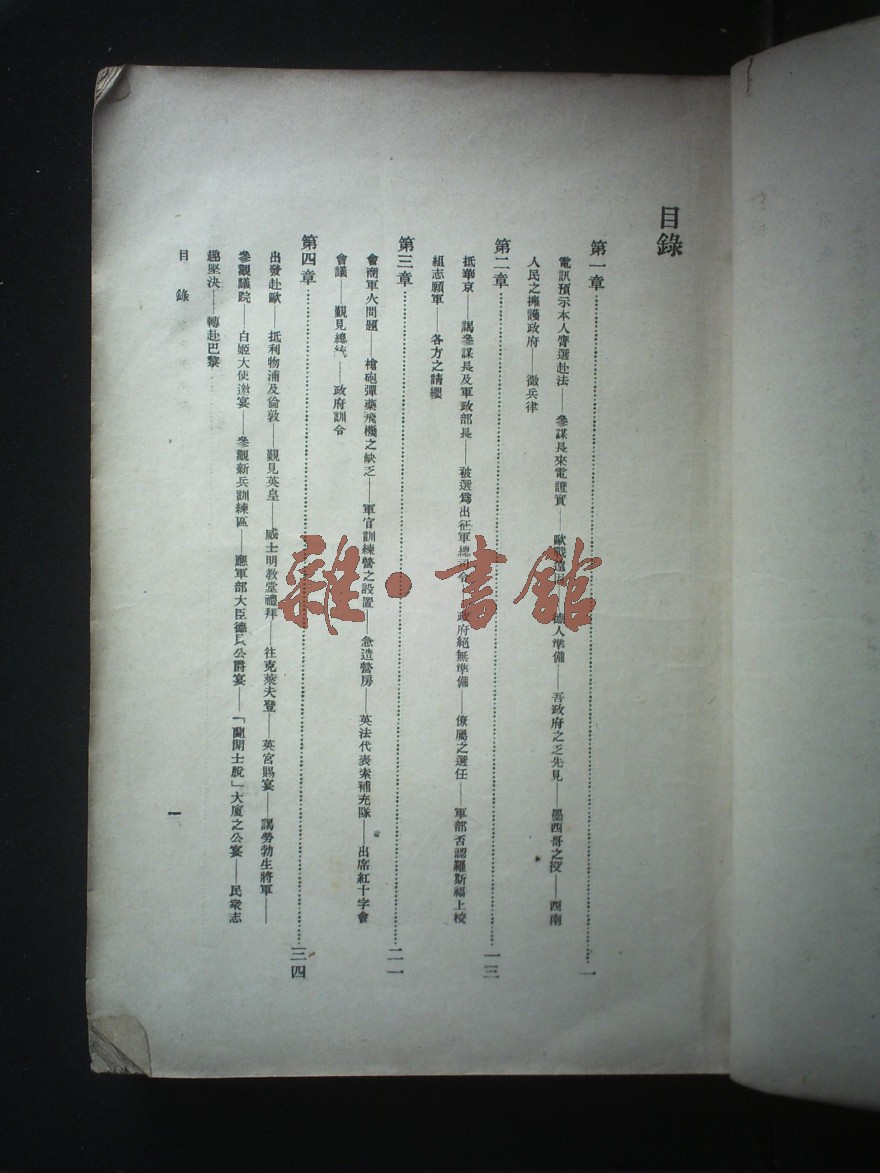 目錄
第一章 一
電訊預示本人膺選赴法——參謀長來電證實——歐戰 德人準備——吾政府之乏先見——墨西哥之役——西南
人民之擁護政府——徵兵律
第二章 一三
抵華京——謁參謀長及軍政部長——被選為出征軍總司令 政府絕無準備——僚屬之選任——軍部否認羅斯福上校
組志願軍——各方之請纓
第三章 二一
會商軍火問題——槍砲彈藥飛機之缺乏——軍官訓練營之設置——急造營房——英法代表索補充隊——出席紅十字會
會議——覲見總統——政府訓令
第四章 三四
出發赴歐——抵利物浦及倫敦——覲見英皇——威士明教堂禮拜——往克萊夫登——英宮賜宴——謁勞勃生將軍——
參觀議院——白姬大使邀宴——參觀新兵訓練區——應軍部大臣德 公爵宴——「蘭開士脫」大廈之公宴——民衆志
趣堅決——轉赴巴黎
目錄
一
雜·書館